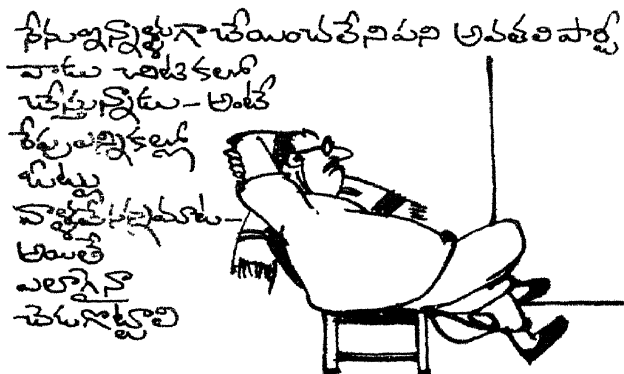 నేను ఇన్నాళ్ళుగా చేయించలేని పని అవతలి పార్టీ
వాడు చిటికలో
చేస్తున్నాడు - అంటే
రేపు ఎన్నికల్లో
ఓట్లు
వాళ్ళకేనన్నమాట -
అయితే
ఎలాగైనా
చెడగొట్టాలి